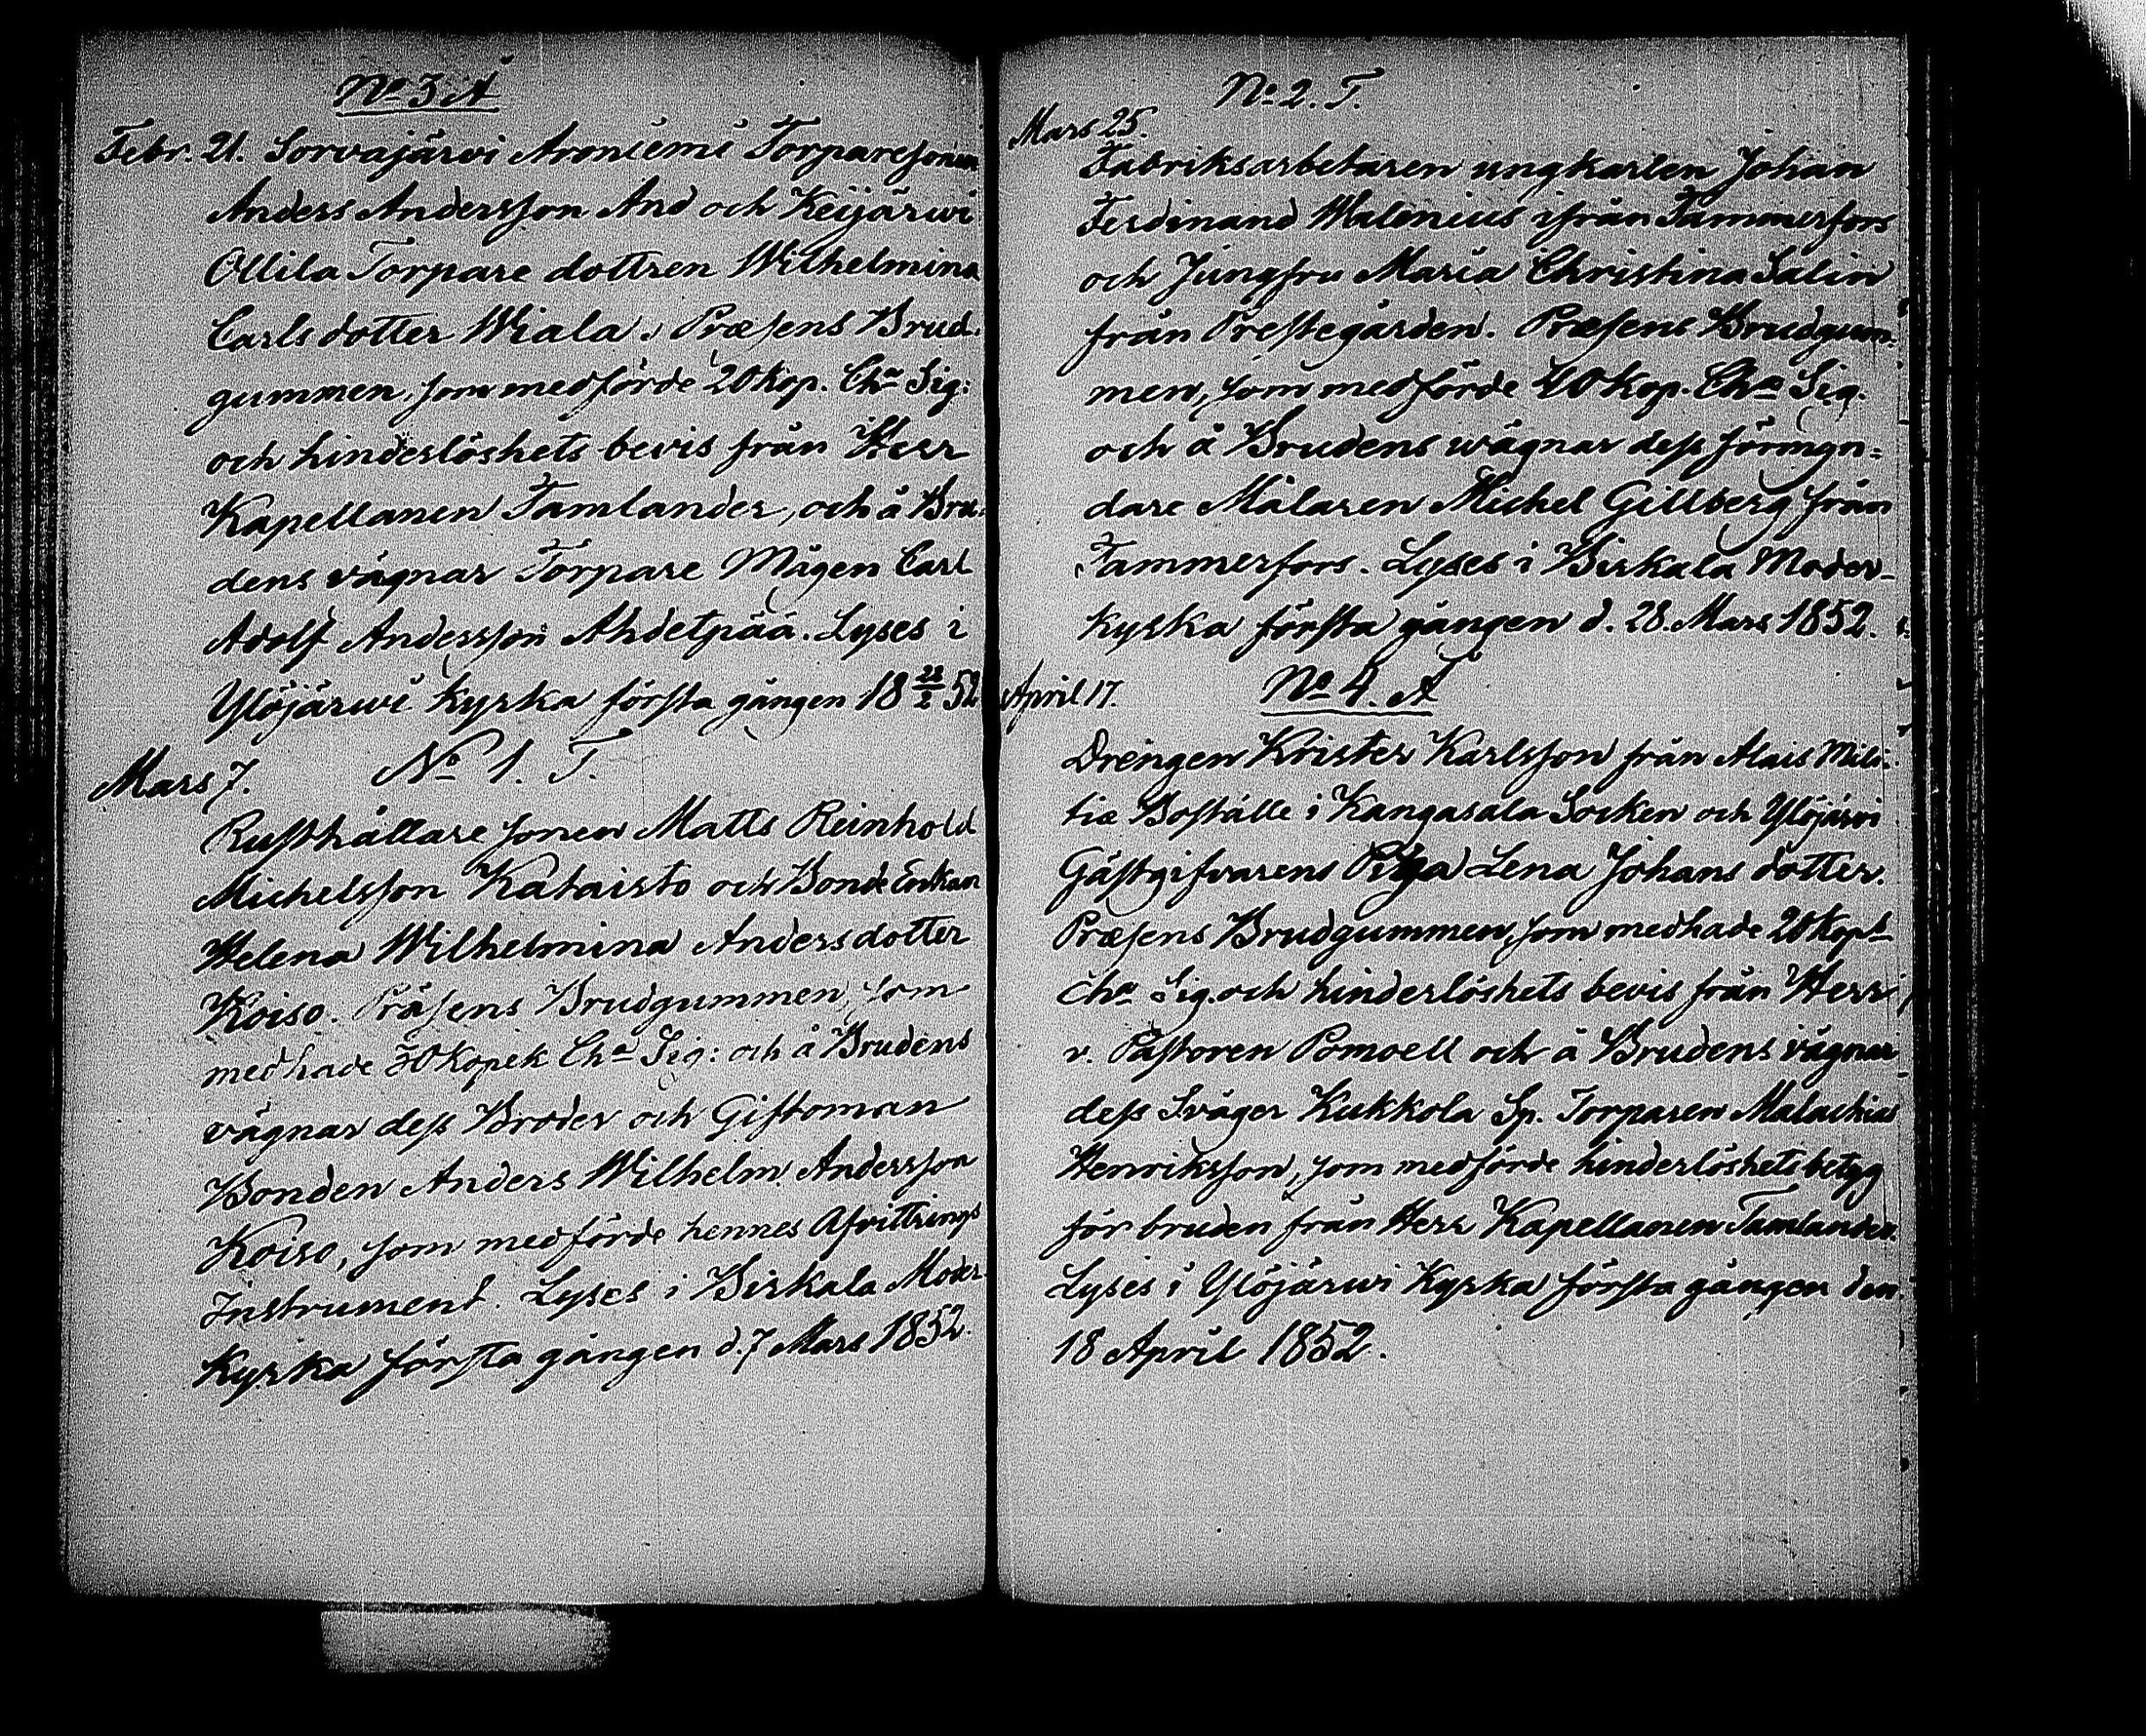 No 3 A
Febr. 21. Sorvajärvi Aroniemi Torparesonen
Anders Andersson And och Keijärwi
Ollila Torpare dottren Wilhelmina
Carlsdotter Wiala. Præsens Brud-
gummen, som medförde 20 kop. Cha Sig:
och hinderslöshets bevis från Herr
Kapellanen Tamlander, och å Bru-
dens vägnar Torpare Mågen Carl
Adolf Andersson Ahdetpää. Lyses i
Ylöjärwi Kyrka första gången 18 22/2 52
Mars 7. No 1. T.
Rusthållare sonen Matts Reinhold
Michelsson Kataisto och Bonde Enkan
Helena Wilhelmina Andersdotter
Koiso. Präsens Brudgummen, som
medhade 30 kopek Cha Sig: och å Brudens
vägnar dess Broder och Giftoman
Bonden Anders Wilhelm Andersson
Koiso, som medförde hennes Afvittrings
Instrument. Lyses i Birkala Moder
Kyrka första gången d. 7 Mars 1852.
No 2. T.
Mars 25.
Fabriksarbetaren ungkarlen Johan
Ferdinand Malenius ifrån Tammerfors
och Jungfru Maria Christina Salin
från Prestegården. Præsens Brudgum-
men, som medförde 40 kop. Cha Sig.
och å Brudens wägnar dess förmyn-
dare Målaren Michel Gillberg från
Tammerfors. Lyses i Birkala Moder-
kyrka första gången d. 28 Mars 1852.
April 17. No 4. A
Drengen Krister Karlsson från Alais Mili-
tiæ Boställe i Kangasala Socken och Ylöjärvi
Gästgifvarens Piga Lena Johans dotter.
Præsens Brudgummen, som medhade 20 kop
Cha Sig. och hinderlöshets bevis från Herr
v. Pastoren Pomoell och å Brudens vägnar
dess Svåger Kukkola Sp. Torparen Malachias
Henriksson, som medförde hinderlöshets betyg
för bruden från Herr Kapellanen Tamlander.
Lyses i Ylöjärwi Kyrka första gången den
18 April 1852.